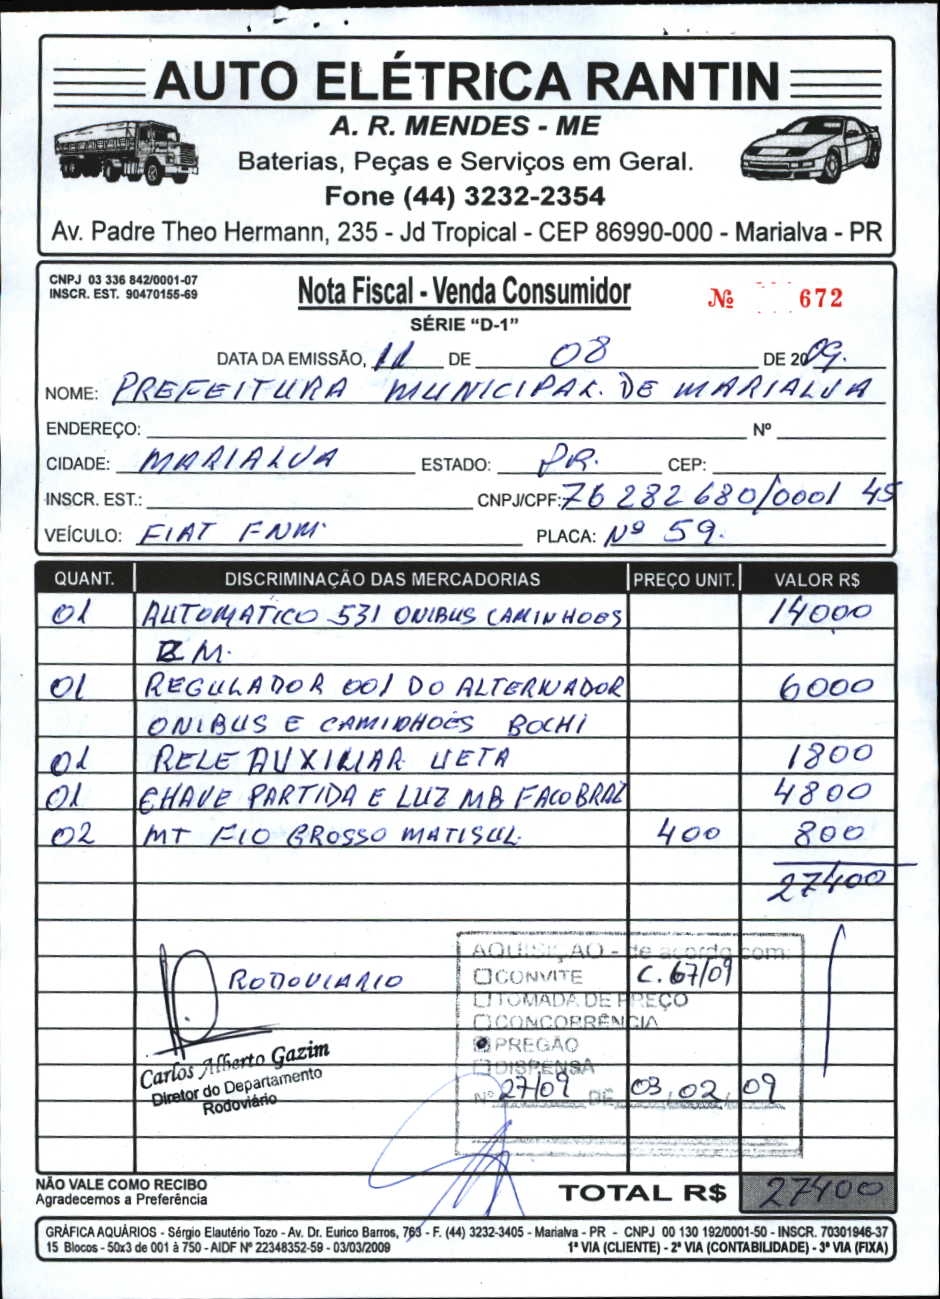 AUTO ELÉTRICA RANTIN
A. R. MENDES - ME
Baterias, Peças e Serviços em Geral.
Fone (44) 3232-2354
Av. Padre Theo Hermann, 235 - Jd Tropical - CEP 86990-000 - Marialva - PR
CNPJ 03 336 842/0001-07
INSCR. EST. 90470155-69
Nota Fiscal - Venda Consumidor
Nº 672
SÉRIE "D-1"
DATA DA EMISSÃO, 11 DE 08 DE 2009.
NOME: PREFEITURA MUNICIPAL. DE MARIALVA
ENDEREÇO: Nº
CIDADE: MARIALVA ESTADO: PR. CEP:
INSCR. EST.: CNPJ/CPF: 76 282 680/0001 45
VEÍCULO: FIAT FNM PLACA: Nº 59.
QUANT. DISCRIMINAÇÃO DAS MERCADORIAS PREÇO UNIT. VALOR R$
01 AUTOMATICO 531 ONIBUS CAMINHOES 14000
M.
01 REGULADOR 001 DO ALTERNADOR 6000
ONIBUS E CAMINHOES BOCHI
01 RELE AUXILIAR UETA 1800
01 CHAVE PARTIDA E LUZ MB FACOBRAZ 4800
02 MT FIO GROSSO MATISUL. 400 800
27400
AQUISIÇÃO - de acordo com:
CONVITE C. 67/09
RODOVIARIO
TOMADA DE PREÇO
CONCORRÊNCIA
PREGÃO
DISPENSA
Nº 27/09 DE 03/02/09
Carlos Alberto Gazim
Diretor do Departamento
Rodoviário
NÃO VALE COMO RECIBO
Agradecemos a Preferência
TOTAL R$ 27400
GRÁFICA AQUÁRIOS - Sérgio Elautério Tozo - Av. Dr. Eurico Barros, 763 - F. (44) 3232-3405 - Marialva - PR - CNPJ 00 130 192/0001-50 - INSCR. 70301946-37
15 Blocos - 50x3 de 001 à 750 - AIDF Nº 22348352-59 - 03/03/2009 1ª VIA (CLIENTE) - 2ª VIA (CONTABILIDADE) - 3ª VIA (FIXA)